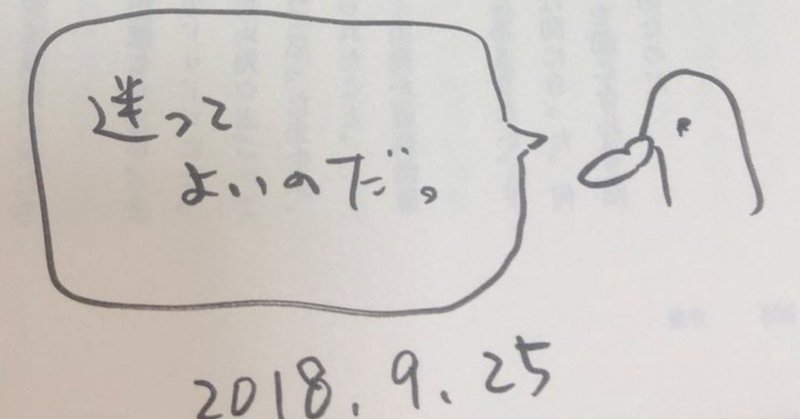 迷って
よいのだ。
2018.9.25